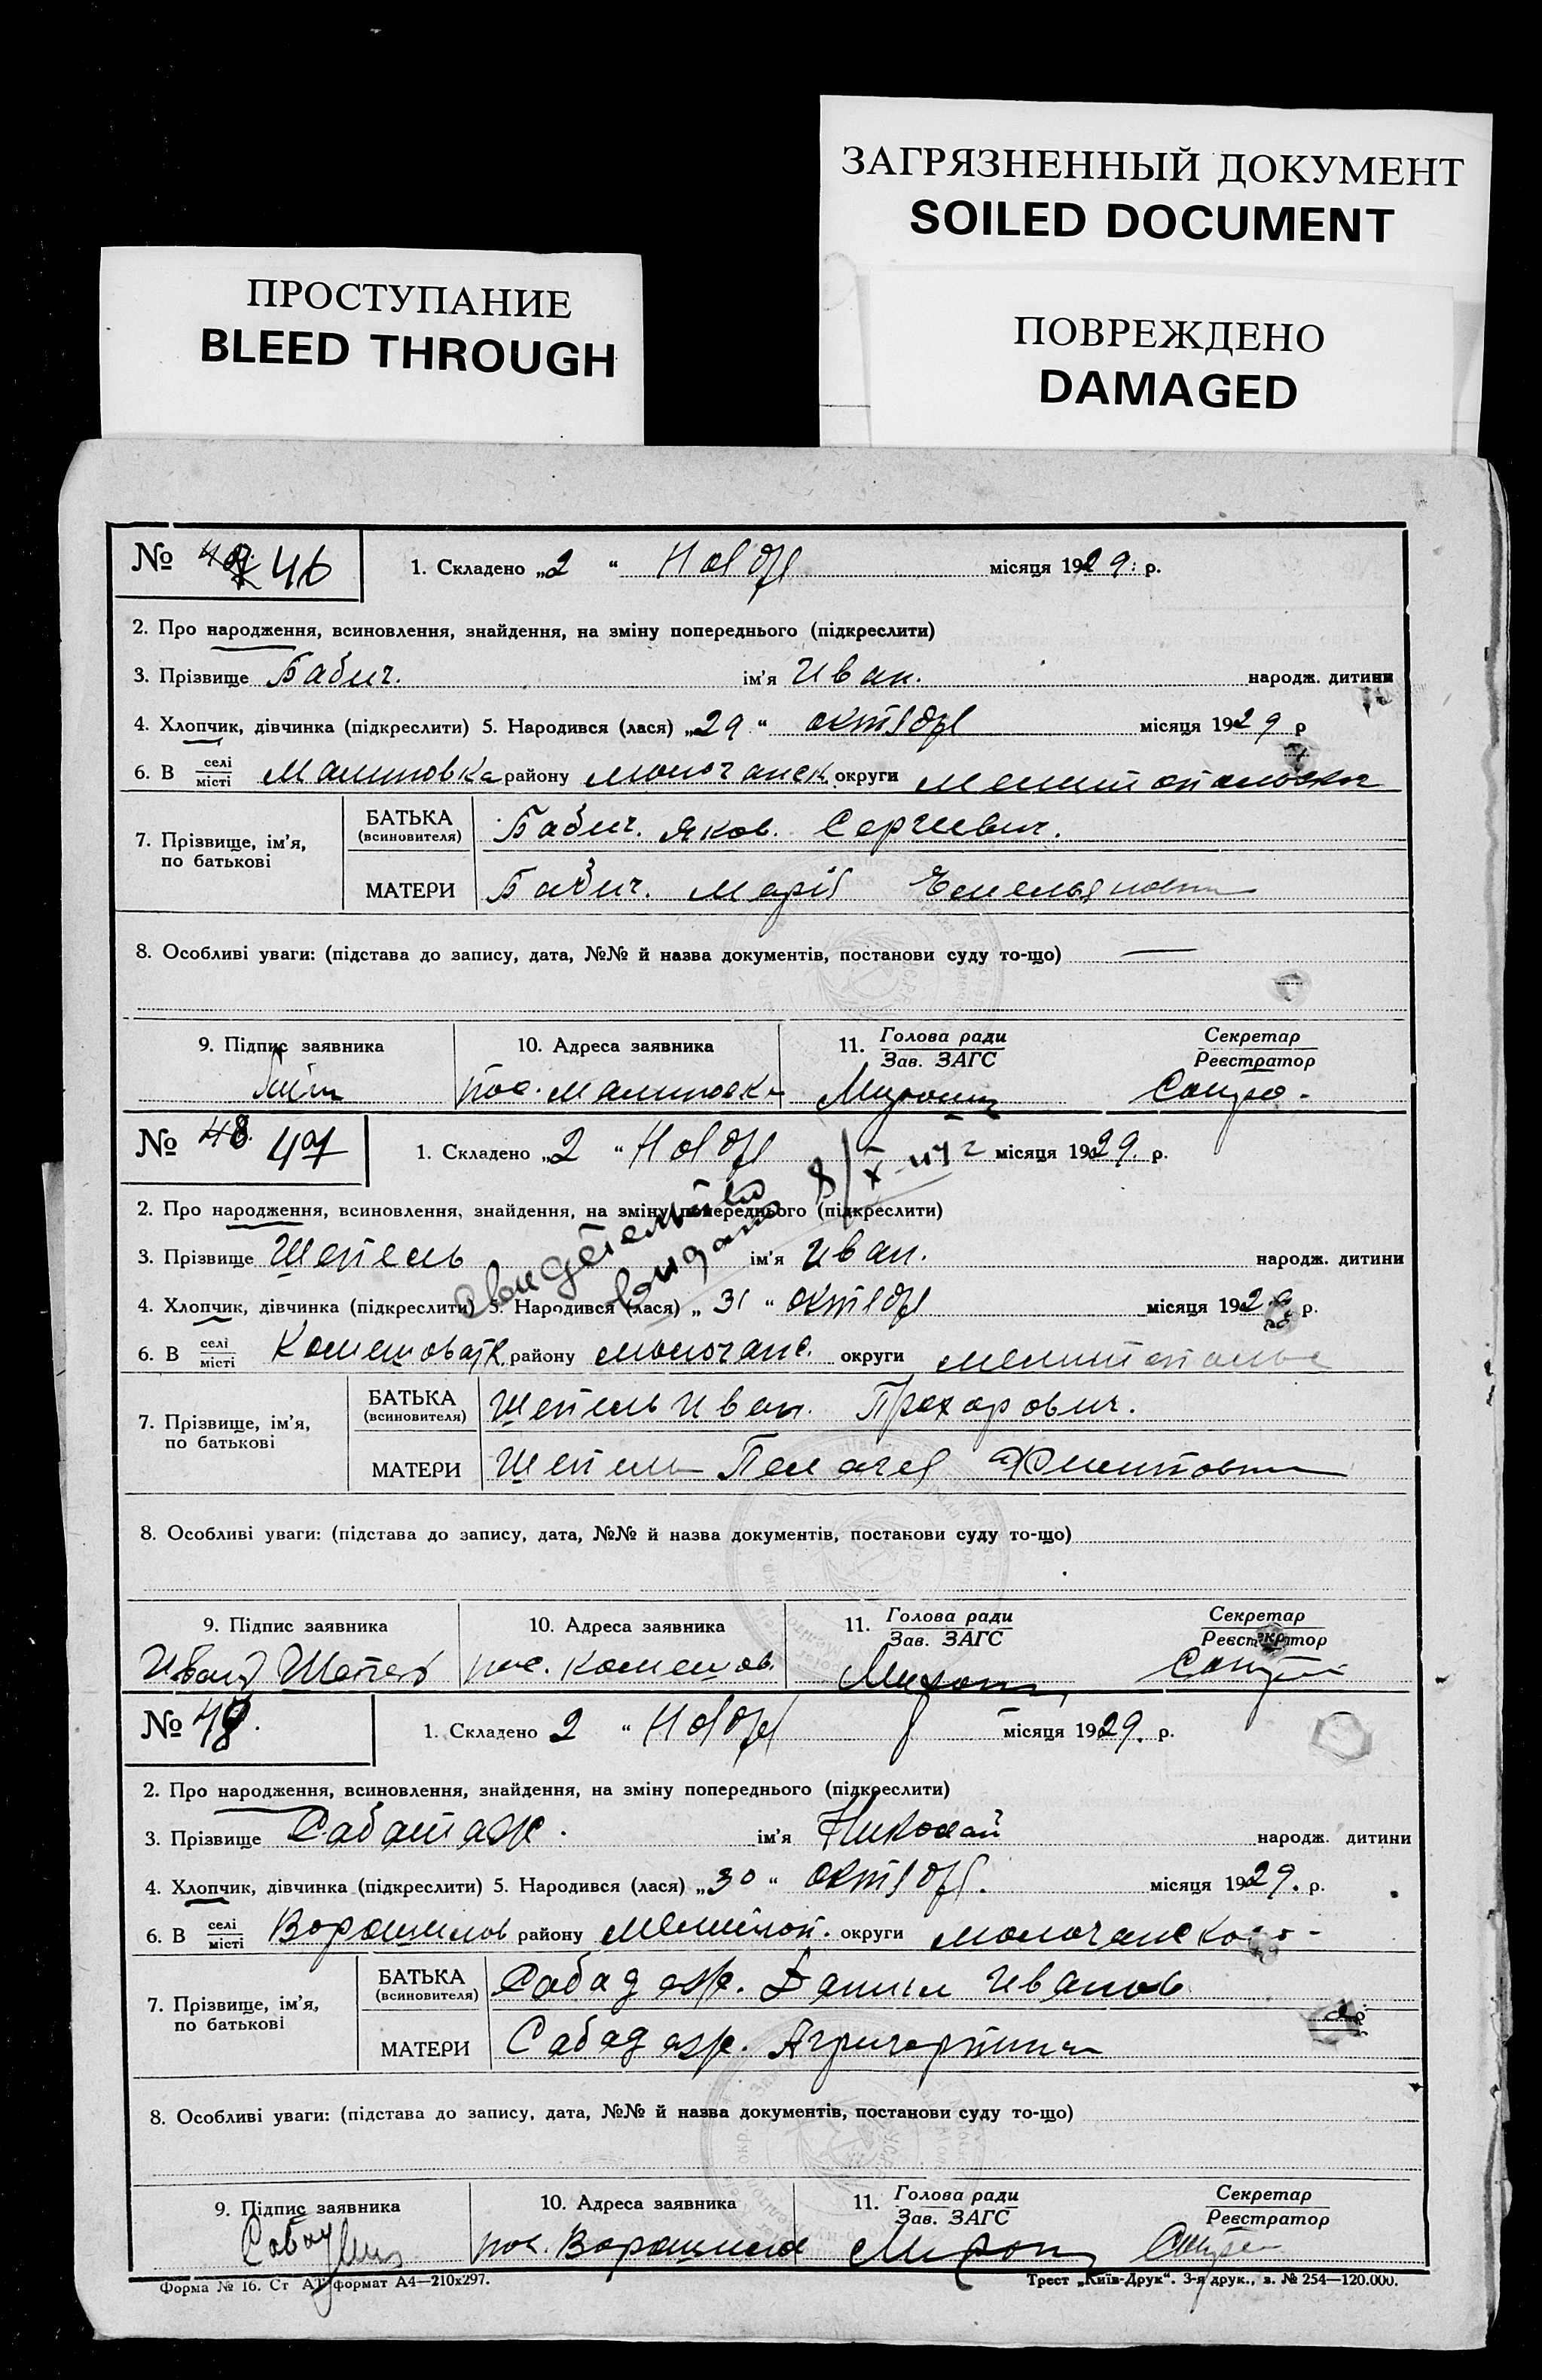 ЗАГРЯЗНЕННЫЙ ДОКУМЕНТ
SOILED DOCUMENT
ПРОСТУПАНИЕ
BLEED THROUGH
ПОВРЕЖДЕНО
DAMAGED
№ 46
1. Складено „2“ Ноября місяця 1929. р.
2. Про народження, всиновлення, знайдення, на зміну попереднього (підкреслити)
3. Прізвище Бабич. ім'я Иван. народж. дитини
4. Хлопчик, дівчинка (підкреслити) 5. Народився (лася) „29“ октября місяця 1929 р
6. В селі місті Малиновка району Молочанск округи Мелитопольской
7. Прізвище, ім'я, по батькові
БАТЬКА (всиновителя) Бабич. Яков. Сергиевич.
МАТЕРИ Бабич. Мария Емельяновна
8. Особливі уваги: (підстава до запису, дата, №№ й назва документів, постанови суду то-що) —
9. Підпис заявника 10. Адреса заявника 11. Голова ради Зав. ЗАГС Секретар Реєстратор
пос. Малиновка
№ 48. 47
1. Складено „2“ Ноября місяця 1929. р.
2. Про народження, всиновлення, знайдення, на зміну попереднього (підкреслити)
3. Прізвище Шепель ім'я Иван. народж. дитини
4. Хлопчик, дівчинка (підкреслити) 5. Народився (лася) „31“ октября місяця 1929 р.
6. В селі місті району Молочанс. округи
7. Прізвище, ім'я, по батькові
БАТЬКА (всиновителя) Шепель Иван. Прохорович.
МАТЕРИ Шепель Пелагея
8. Особливі уваги: (підстава до запису, дата, №№ й назва документів, постанови суду то-що)
9. Підпис заявника 10. Адреса заявника 11. Голова ради Зав. ЗАГС Секретар Реєстратор
Иван Шепель пос.
№ 48.
1. Складено 2 “ Ноября місяця 1929. р.
2. Про народження, всиновлення, знайдення, на зміну попереднього (підкреслити)
3. Прізвище ім'я Николай народж. дитини
4. Хлопчик, дівчинка (підкреслити) 5. Народився (лася) „30“ октября. місяця 1929. р.
6. В селі місті Ворошилов району Мелитоп. округи
7. Прізвище, ім'я, по батькові
БАТЬКА (всиновителя) Данил Иванов
МАТЕРИ
8. Особливі уваги: (підстава до запису, дата, №№ й назва документів, постанови суду то-що)
9. Підпис заявника 10. Адреса заявника 11. Голова ради Зав. ЗАГС Секретар Реєстратор
пос.
Форма № 16. Ст АТ формат А4—210х297.
Трест „Київ-Друк“. 3-я друк., з. № 254—120.000.